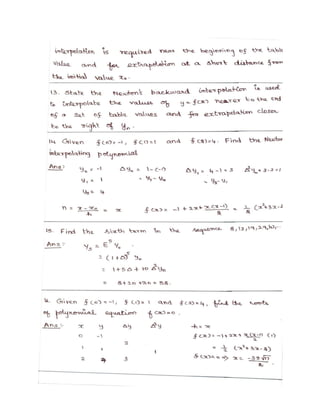 interpolation is required near the beginning of the table
value and for extrapolation at a short distance from
the initial value x₀.
13. State the Newton's backward interpolation is used
to interpolate the values of y = f(x) nearer to the end
of a set of table values and for extrapolation closer
to the right of yₙ.
14. Given f(0)=-1, f(1)=1 and f(2)=4. Find the Newton
interpolating polynomial
Ans:- y₀ = -1 Δy₀ = 1-(-1) Δy₁ = 4-1=3 Δ²y₀=3-2=1
y₁ = 1 = y₁-y₀ = y₂-y₁
y₂ = 4
n = x-x₀/h = x f(x) = -1+2x+x(x-1)/2 = 1/2 (x²+3x-2
15. Find the sixth term in the sequence 8, 12, 19, 29, 42, ...
Ans:- y₅ = E⁵ y₀
= (1+Δ)⁵ y₀
= 1+5Δ+10Δ²y₀
= 8+20+30 = 58.
16. Given f(0)=-1, f(1)=1 and f(2)=4, find the roots
of polynomial equation f(x)=0.
Ans:- x y Δy Δ²y n=x
0 -1 f(x)=-1+2x+x(x-1)/2 (1)
2
1 1 1 = 1/2 (x²+3x-2)
2 4 3 f(x)=0 ⇒ x = -3±√17/2